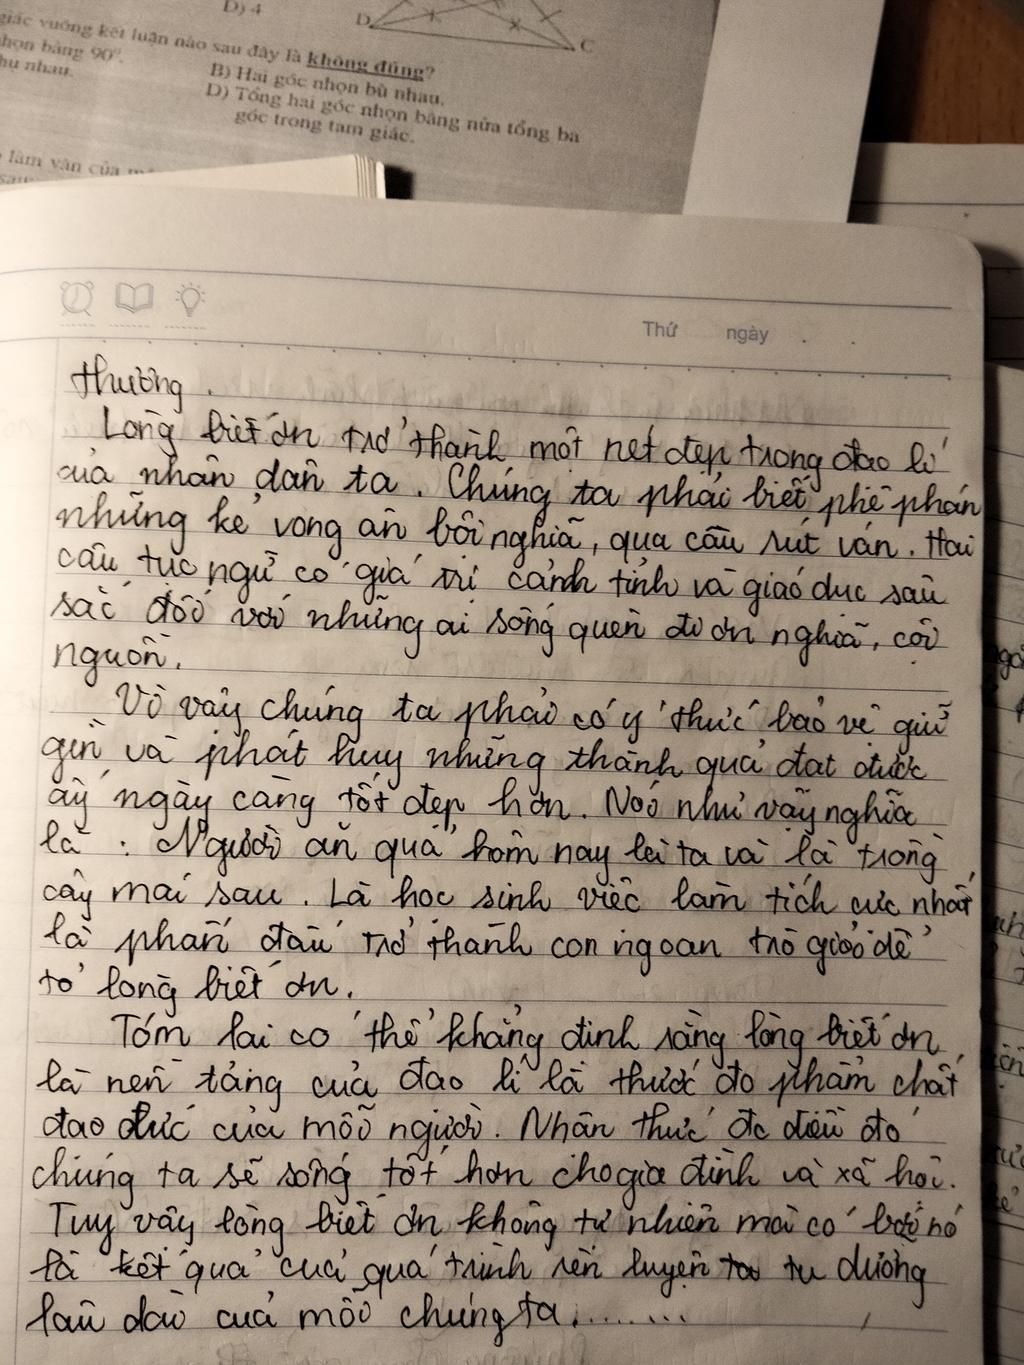 D) 4
D
C
giác vuông kết luận nào sau đây là không đúng?
nhọn bằng 90°.
B) Hai góc nhọn bù nhau.
hụ nhau.
D) Tổng hai góc nhọn bằng nửa tổng ba
góc trong tam giác.
làm văn của
Thứ ngày
thường.
Lòng biết ơn trở thành một nét đẹp trong đạo lí
của nhân dân ta. Chúng ta phải biết phê phán
những kẻ vong ân bội nghĩa, qua cầu rút ván. Hai
câu tục ngữ có giá trị cảnh tỉnh và giáo dục sâu
sắc đối với những ai sống quên đi ơn nghĩa, cội
nguồn.
Vì vậy chúng ta phải có ý thức bảo vệ giữ
gìn và phát huy những thành quả đạt được
ấy ngày càng tốt đẹp hơn. Nói như vậy nghĩa
là : Người ăn quả hôm nay là ta và là trồng
cây mai sau. Là học sinh việc làm tích cực nhất
là phấn đấu trở thành con ngoan trò giỏi để
tỏ lòng biết ơn.
Tóm lại có thể khẳng định rằng lòng biết ơn
là nền tảng của đạo lí là thước đo phẩm chất
đạo đức của mỗi người. Nhận thức đc điều đó
chúng ta sẽ sống tốt hơn cho gia đình và xã hội.
Tuy vậy lòng biết ơn không tự nhiên mà có bởi nó
là kết quả của quá trình rèn luyện tu dưỡng
lâu dài của mỗi chúng ta........